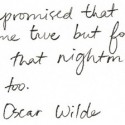 promised that
me true but fo
that nightm
too.
Oscar Wilde